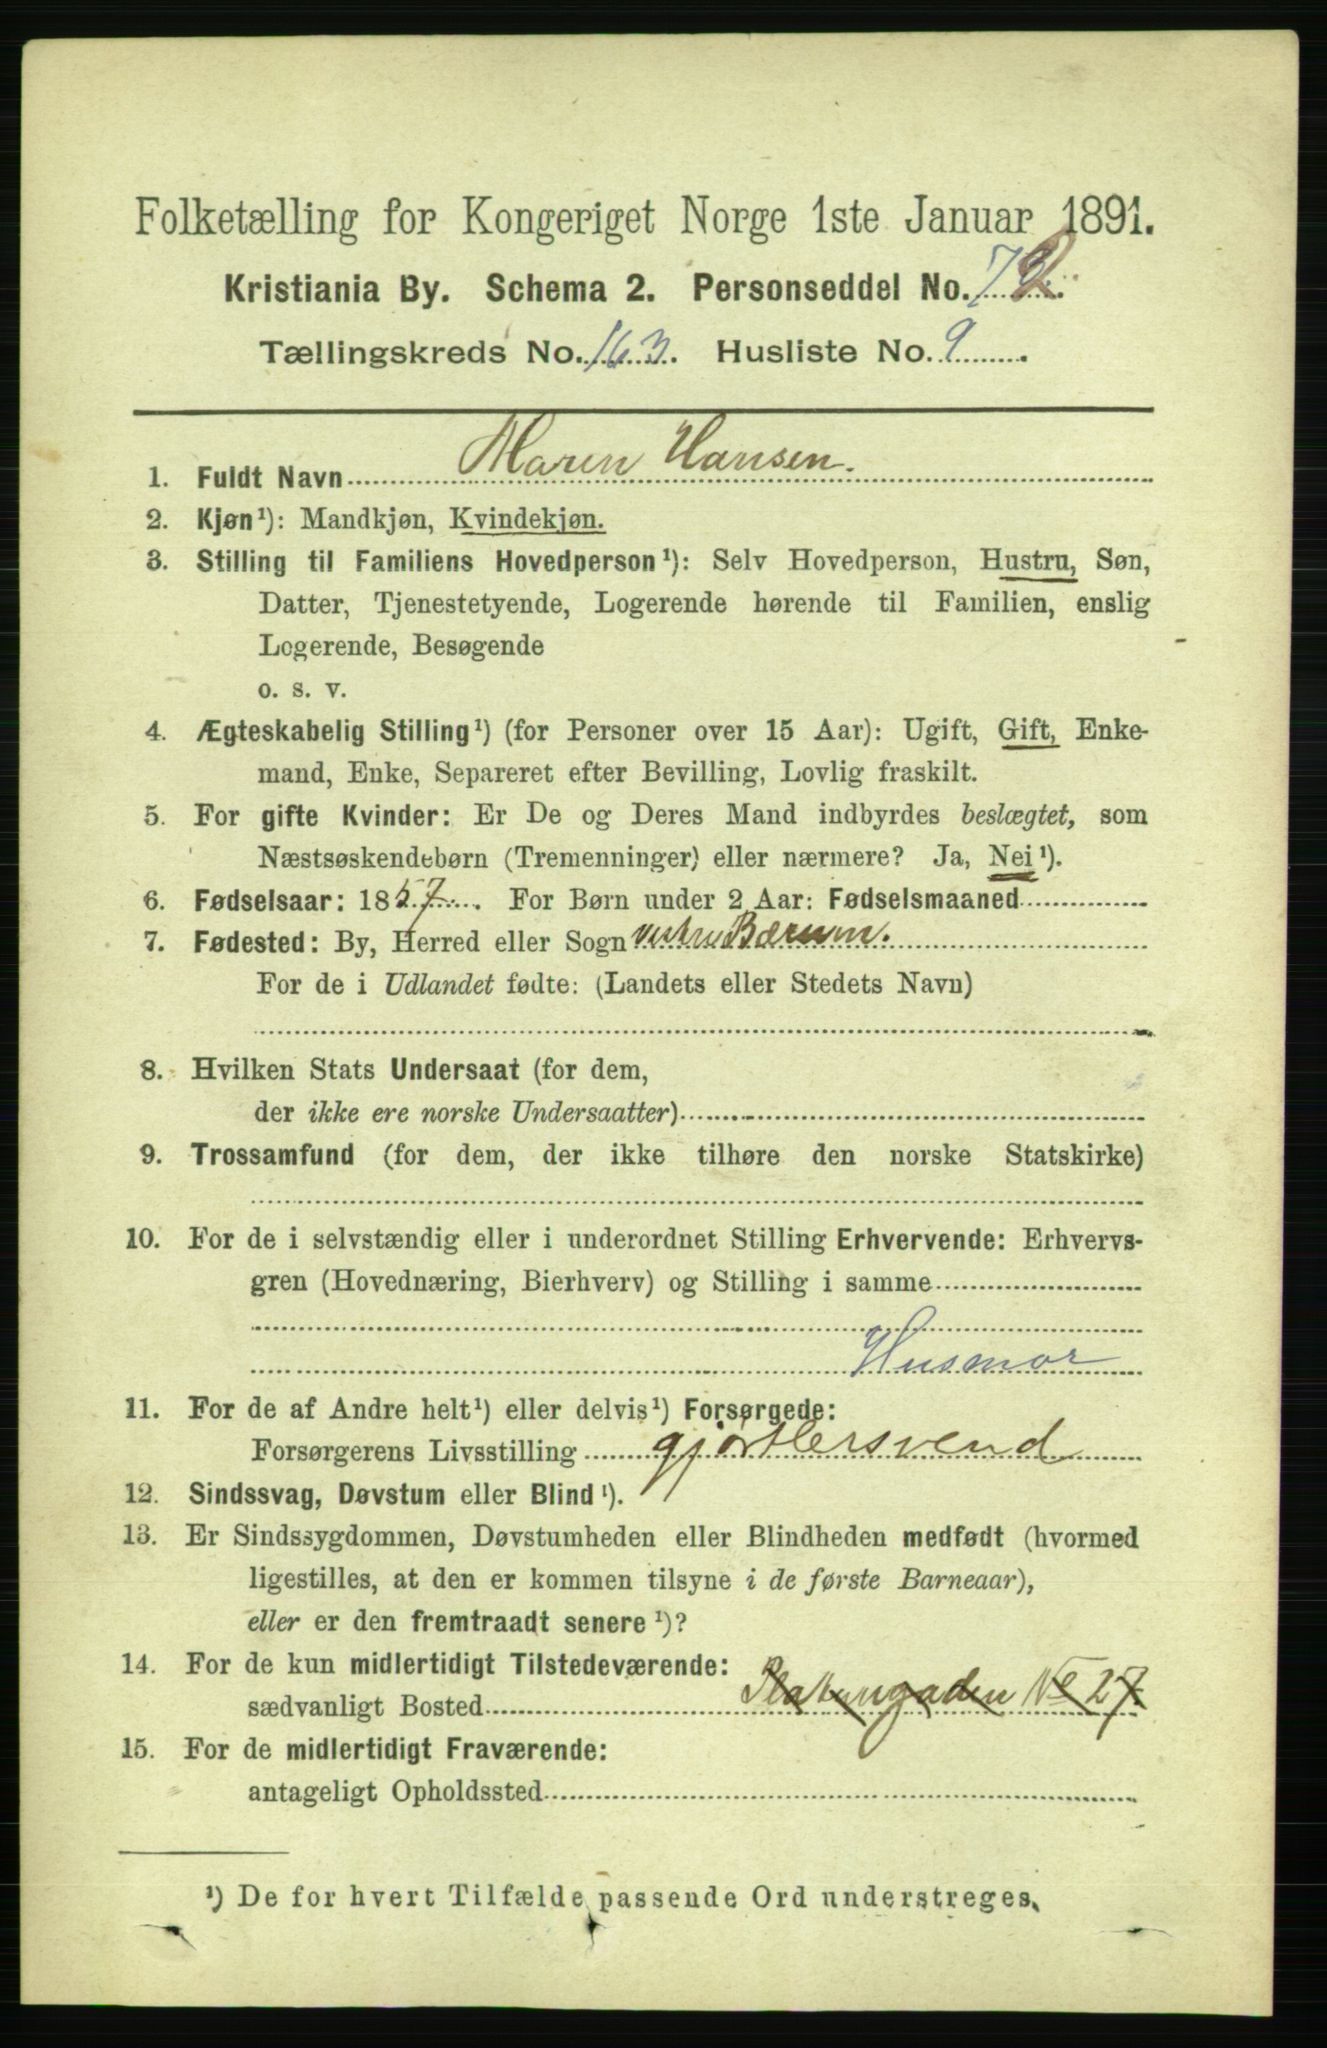 Folketælling for Kongeriget Norge 1ste Januar 1891.
Kristiania By. Schema 2. Personseddel No. 72
Tællingskreds No. 163. Husliste No. 9
1. Fuldt Navn Maren Hansen.
2. Kjøn¹): Mandkjøn, Kvindekjøn.
3. Stilling til Familiens Hovedperson¹): Selv Hovedperson, Hustru, Søn,
Datter, Tjenestetyende, Logerende hørende til Familien, enslig
Logerende, Besøgende
o. s. v.
4. Ægteskabelig Stilling¹) (for Personer over 15 Aar): Ugift, Gift, Enke-
mand, Enke, Separeret efter Bevilling, Lovlig fraskilt.
5. For gifte Kvinder: Er De og Deres Mand indbyrdes beslægtet, som
Næstsøskendebørn (Tremenninger) eller nærmere? Ja, Nei¹).
6. Fødselsaar: 1857. For Børn under 2 Aar: Fødselsmaaned
7. Fødested: By, Herred eller Sogn vestre Bærum.
For de i Udlandet fødte: (Landets eller Stedets Navn)
8. Hvilken Stats Undersaat (for dem,
der ikke ere norske Undersaatter)
9. Trossamfund (for dem, der ikke tilhøre den norske Statskirke)
10. For de i selvstændig eller i underordnet Stilling Erhvervende: Erhvervs-
gren (Hovednæring, Bierhverv) og Stilling i samme
Husmor
11. For de af Andre helt¹) eller delvis¹) Forsørgede:
Forsørgerens Livsstilling gjørtlersvend
12. Sindssvag, Døvstum eller Blind¹).
13. Er Sindssygdommen, Døvstumheden eller Blindheden medfødt (hvormed
ligestilles, at den er kommen tilsyne i de første Barneaar),
eller er den fremtraadt senere¹)?
14. For de kun midlertidigt Tilstedeværende:
sædvanligt Bosted Platangaden No 27.
15. For de midlertidigt Fraværende:
antageligt Opholdssted
¹) De for hvert Tilfælde passende Ord understreges.